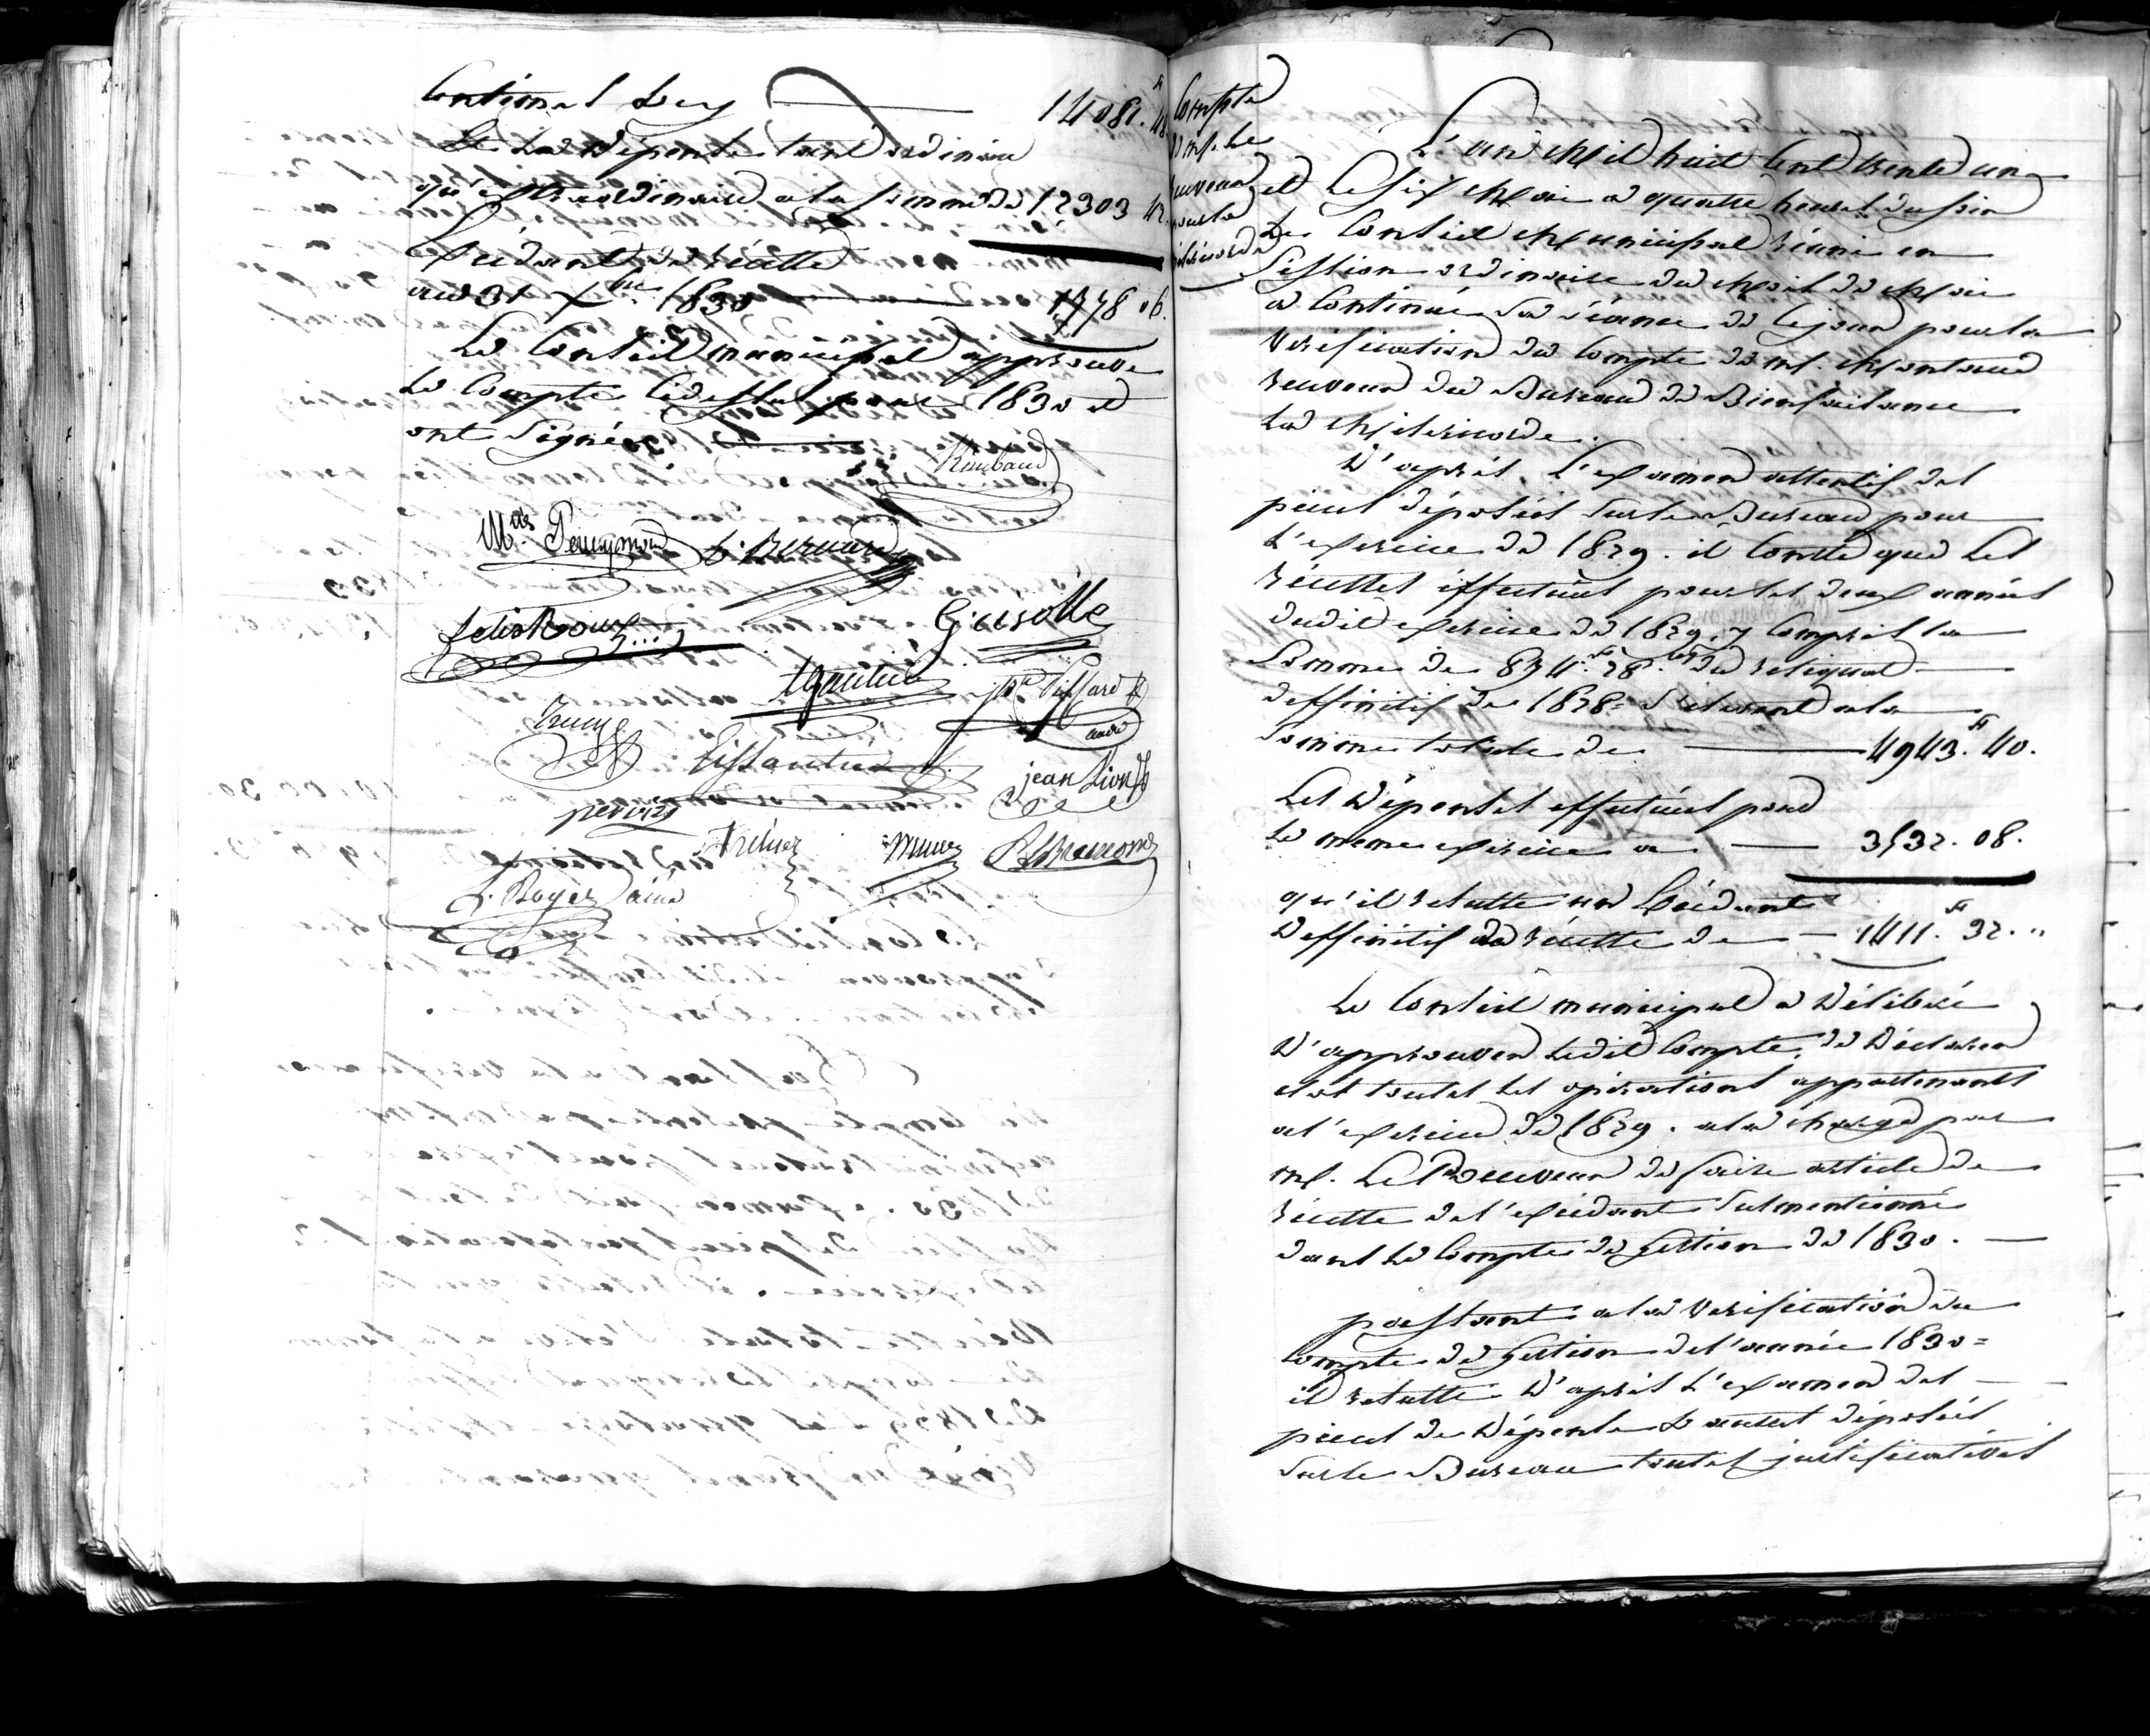 Centimes Cy 14081.fr 48.
Et la Dépense tant ordinaire
qu'extraordinaire a la somme de 12303 42.
Excédant de récette
au 31 Xbre 1830 1778 06.
Le Conseil municipal approuve
le Compte Cidessus pour 1830 et
ont signés
Rimbaud
Giusolle
tgautier
jean Lions
L. Boyer ainé
Compte
de m. le
receveur
pour la
miséricorde
L'an Mil huit Cent trente un
et le six Mai a quatre heures du soir
Le Conseil Municipal réuni en
Session ordinaire du Mois de Mai
a Continué sa séance de Cejour pour la
Vérification du Compte de m. Montaud
receveur du Bureau de Bienfaisance
La Miséricorde.
D'après L'examen attentif des
pieces déposées sur le Bureau pour
L'exercice de 1829. il Conste que les
récettes éffectuées pour les deux années
dudit exercice de 1829, y Compris la
Somme de 834.fr 28.cs du reliquat
deffinitif de 1828. s'élevent a la
Somme totale de 4943.fr 40.
Les Dépenses effectuées pour
le meme exercice a 3532. 08.
qu'il résulte un Excédant
Deffinitif de récette de 1411.fr 32. "
Le Conseil municipal a Délibéré
D'approuver ledit Compte, de Déclarer
clos toutes les opérations appartenants
a l'exercice de 1829. a la charge par
m. Le Receveur de faire article de
récette de l'excédant susmentionné
dans le Compte de gestion de 1830.
passant a la Verification du
Compte de gestion de l'année 1830=
il résulte D'après L'examen des
pieces de Dépense Lesquelles déposées
sur le Bureau toutes justificatives